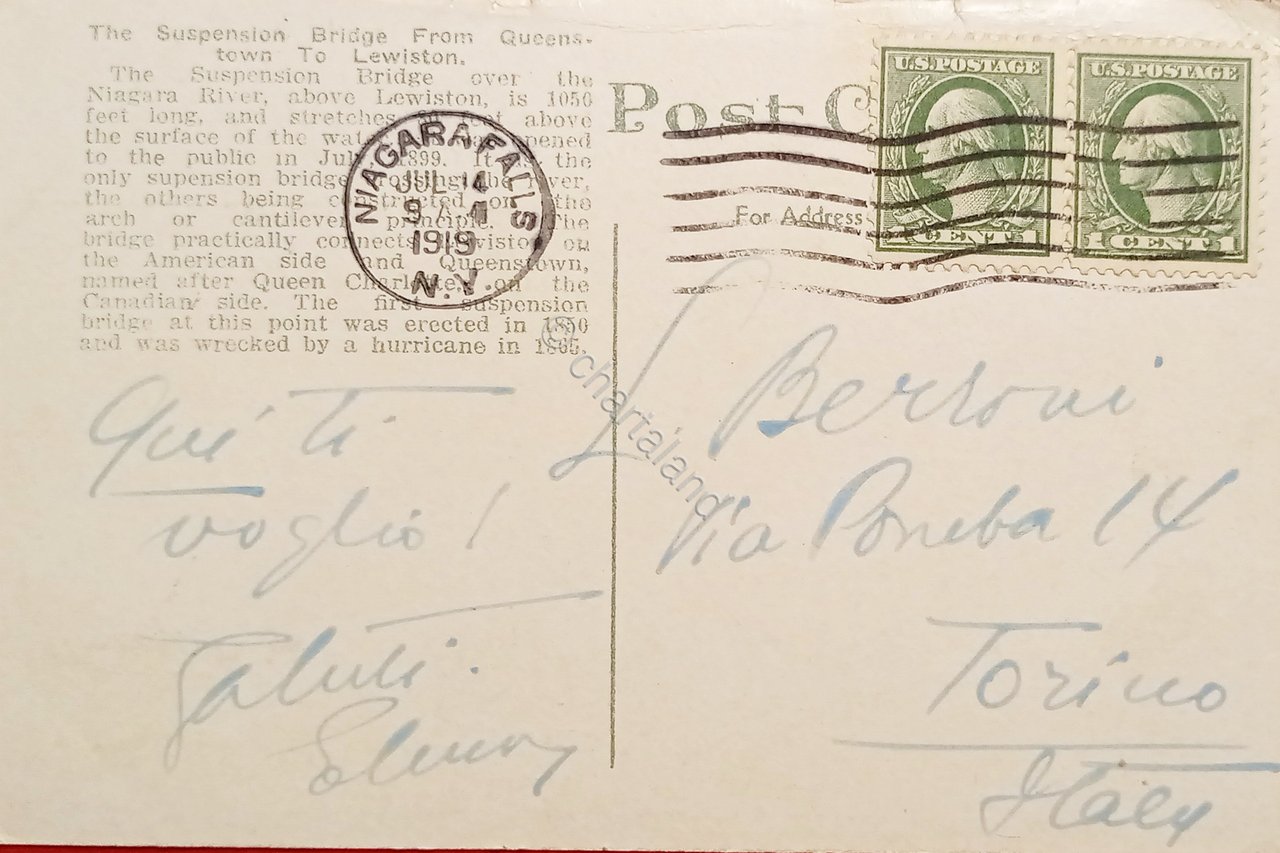 The Suspension Bridge From Queens-
town To Lewiston.
The Suspension Bridge over the
Niagara River, above Lewiston, is 1050
feet long, and stretches feet above
the surface of the water. was opened
to the public in July 1899. It is the
only supension bridge crossing the river,
the others being constructed on the
arch or cantilever principle. The
bridge practically connects Lewiston on
the American side and Queenstown,
named after Queen Charlotte, on the
Canadian side. The first suspension
bridge at this point was erected in 1850
and was wrecked by a hurricane in
Post C
For Address
NIAGARA FALLS.
JUL
9
1919
N.Y.
U.S. POSTAGE
1 CENT 1
U.S. POSTAGE
1 CENT 1
© chartaland
Qui ti
voglio!
Saluti.
Via 14
Torino
Italy